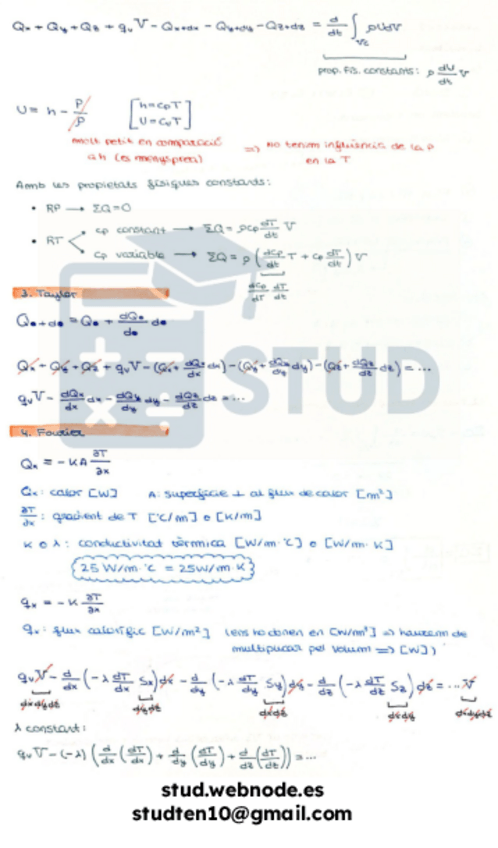 Qx + Qy + Qz + qv V − Qx+dx − Qy+dy − Qz+dz = d/dt ∫vc ρUdV
prop. fís. constants: ρ dU/dt V
U = h − P/ρ [h=cpT
U=cvT]
molt petit en comparació
a h (es menysprea)
⇒ no tenim influència de la P
en la T
Amb les propietats físiques constants:
• RP → ΣQ=0
• RT
cp constant → ΣQ = ρcp dT/dt V
cp variable → ΣQ = ρ (dcp/dt T + cp dT/dt) V
dcp/dT dT/dt
3. Taylor
Q•+d• = Q• + dQ•/d• d•
Qx + Qy + Qz + qv V − (Qx + dQx/dx dx) − (Qy + dQy/dy dy) − (Qz + dQz/dz dz) = ...
qv V − dQx/dx dx − dQy/dy dy − dQz/dz dz = ...
STUD
4. Fourier
Qx = −KA ∂T/∂x
Qx: calor [W] A: superfície ⊥ al flux de calor [m²]
∂T/∂x: gradient de T [°C/m] o [K/m]
K o λ: conductivitat tèrmica [W/m·°C] o [W/m·K]
25 W/m·°C = 25 W/m·K
qx = −K ∂T/∂x
qx: flux calorífic [W/m²] (ens ho donen en [W/m³] ⇒ haurem de
multiplicar pel volum ⇒ [W])
qv V − d/dx (−λ dT/dx Sx) dx − d/dy (−λ dT/dy Sy) dy − d/dz (−λ dT/dz Sz) dz = ... V
dxdydz dydz dxdz dxdy dxdydz
λ constant:
qv V − (−λ) (d/dx (dT/dx) + d/dy (dT/dy) + d/dz (dT/dz)) = ...
stud.webnode.es
studten10@gmail.com